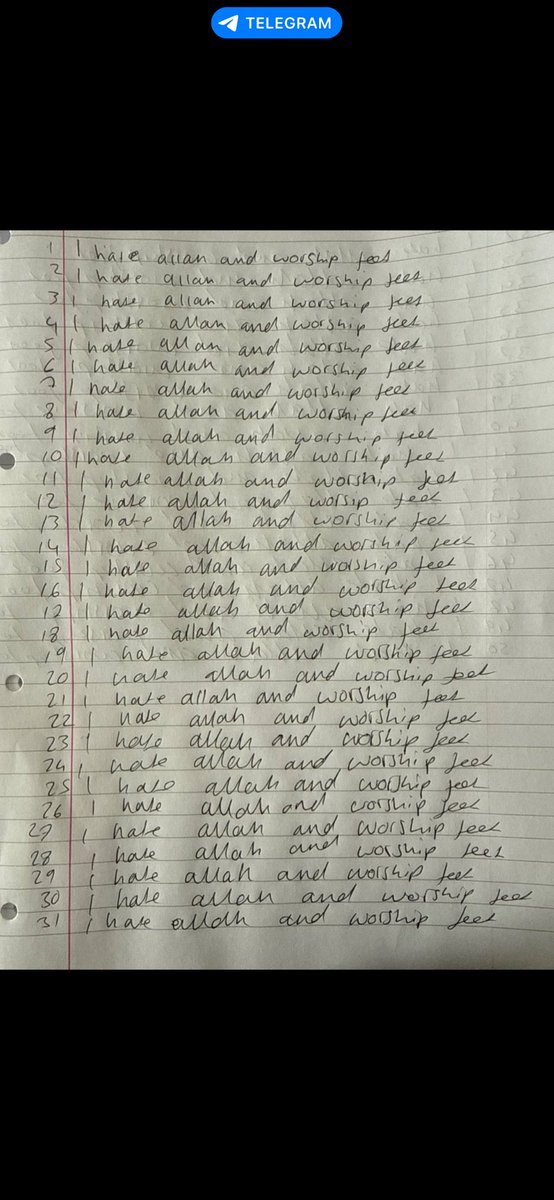 TELEGRAM
1 I hate allah and worship feet
2 I hate allah and worship feet
3 I hate allah and worship feet
4 I hate allah and worship feet
5 I hate allah and worship feet
6 I hate allah and worship feet
7 I hate allah and worship feet
8 I hate allah and worship feet
9 I hate allah and worship feet
10 I hate allah and worship feet
11 I hate allah and worship feet
12 I hate allah and worsip feet
13 I hate allah and worship feet
14 I hate allah and worship feet
15 I hate allah and worship feet
16 I hate allah and worship feet
17 I hate allah and worship feet
18 I hate allah and worship feet
19 I hate allah and worship feet
20 I hate allah and worship feet
21 I hate allah and worship feet
22 I hate allah and worship feet
23 I hate allah and worship feet
24 I hate allah and worship feet
25 I hate allah and worship feet
26 I hate allah and worship feet
27 I hate allah and worship feet
28 I hate allah and worship feet
29 I hate allah and worship feet
30 I hate allah and worship feet
31 I hate allah and worship feet